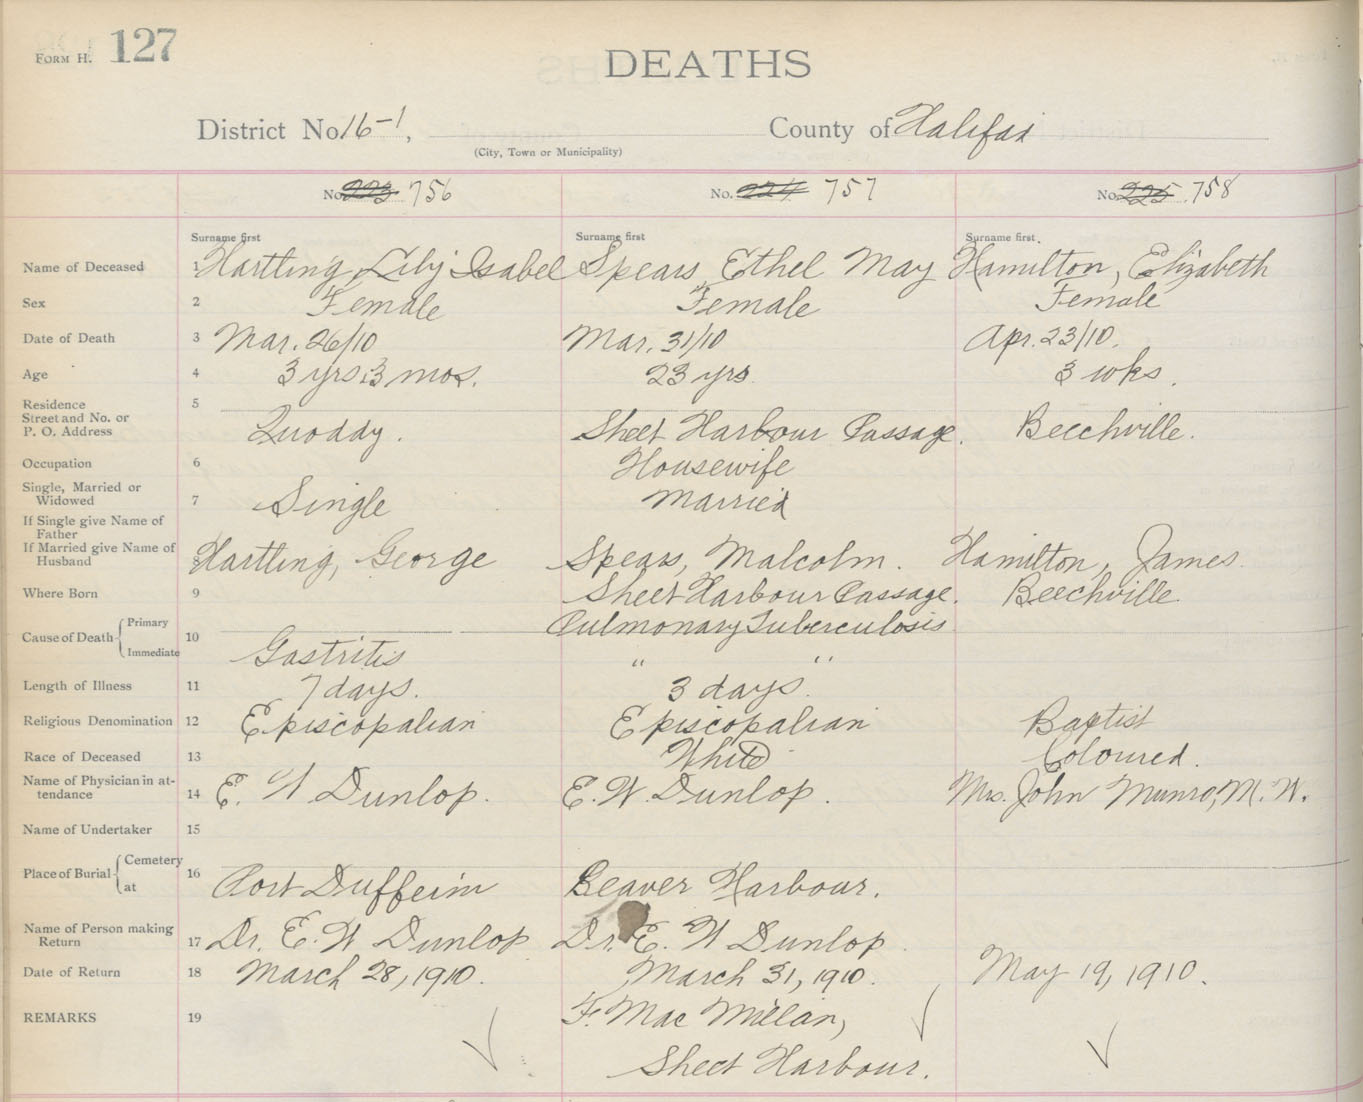 FORM H. 127
DEATHS
District No. 16-1, County of Halifax
(City, Town or Municipality)
No. 223 756 No. 224 757 No. 225 758
Surname first Surname first Surname first
Name of Deceased 1 Hartling, Lily Isabel Spears, Ethel May Hamilton, Elizabeth
Sex 2 Female Female Female
Date of Death 3 Mar. 26/10 Mar. 31/10 Apr. 23/10.
Age 4 3 yrs. 3 mos. 23 yrs 3 wks.
Residence 5
Street and No. or
P. O. Address Quoddy. Sheet Harbour Passage. Beechville.
Occupation 6 Housewife
Single, Married or
Widowed 7 Single Married
If Single give Name of
Father
If Married give Name of
Husband 8 Hartling, George Spears, Malcolm. Hamilton, James.
Where Born 9 Sheet Harbour Passage. Beechville
Cause of Death Primary 10 Pulmonary Tuberculosis
Immediate Gastritis " "
Length of Illness 11 7 days. 3 days.
Religious Denomination 12 Episcopalian Episcopalian Baptist
Race of Deceased 13 White Coloured.
Name of Physician in at-
tendance 14 E. W Dunlop. E. W. Dunlop. Mrs. John Munro, M. W.
Name of Undertaker 15
Place of Burial Cemetery 16
at Port Dufferin Beaver Harbour.
Name of Person making
Return 17 Dr. E. W Dunlop Dr. E. W Dunlop
Date of Return 18 March 28, 1910. March 31, 1910. May 19, 1910.
REMARKS 19 F. Mac Millan,
Sheet Harbour.